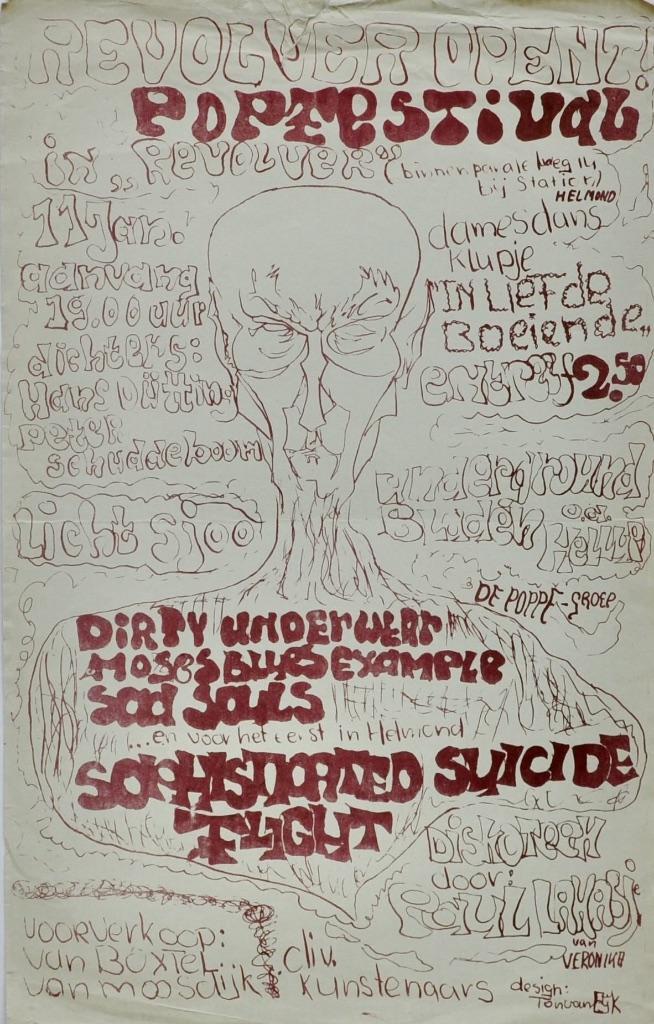 REVOLVER OPENT!
POPFESTIVAL
in „REVOLVER"
bij Station)
HELMOND
11 Jan.
aanvang
19.00 uur
dichters:
Hans Dütting
peter
schuddeboom
damesdans
klupje
"IN LiefdE
Boeiende„
entree 2.50
licht sjoo
underground
Bladen o.a.
DE POPPE-GROEP
DiRTY underwear
MOSES BLUES EXAMPLE
Sad Souls
...en voor het eerst in Helmond
SOPHISTICATED SUICIDE
FLIGHT
DISKOTEEK
door:
PAUL
van
VERONIKA
voorverkoop:
van BOXTEL
van moosdijk
div.
kunstenaars
design:
Ton van Eijk